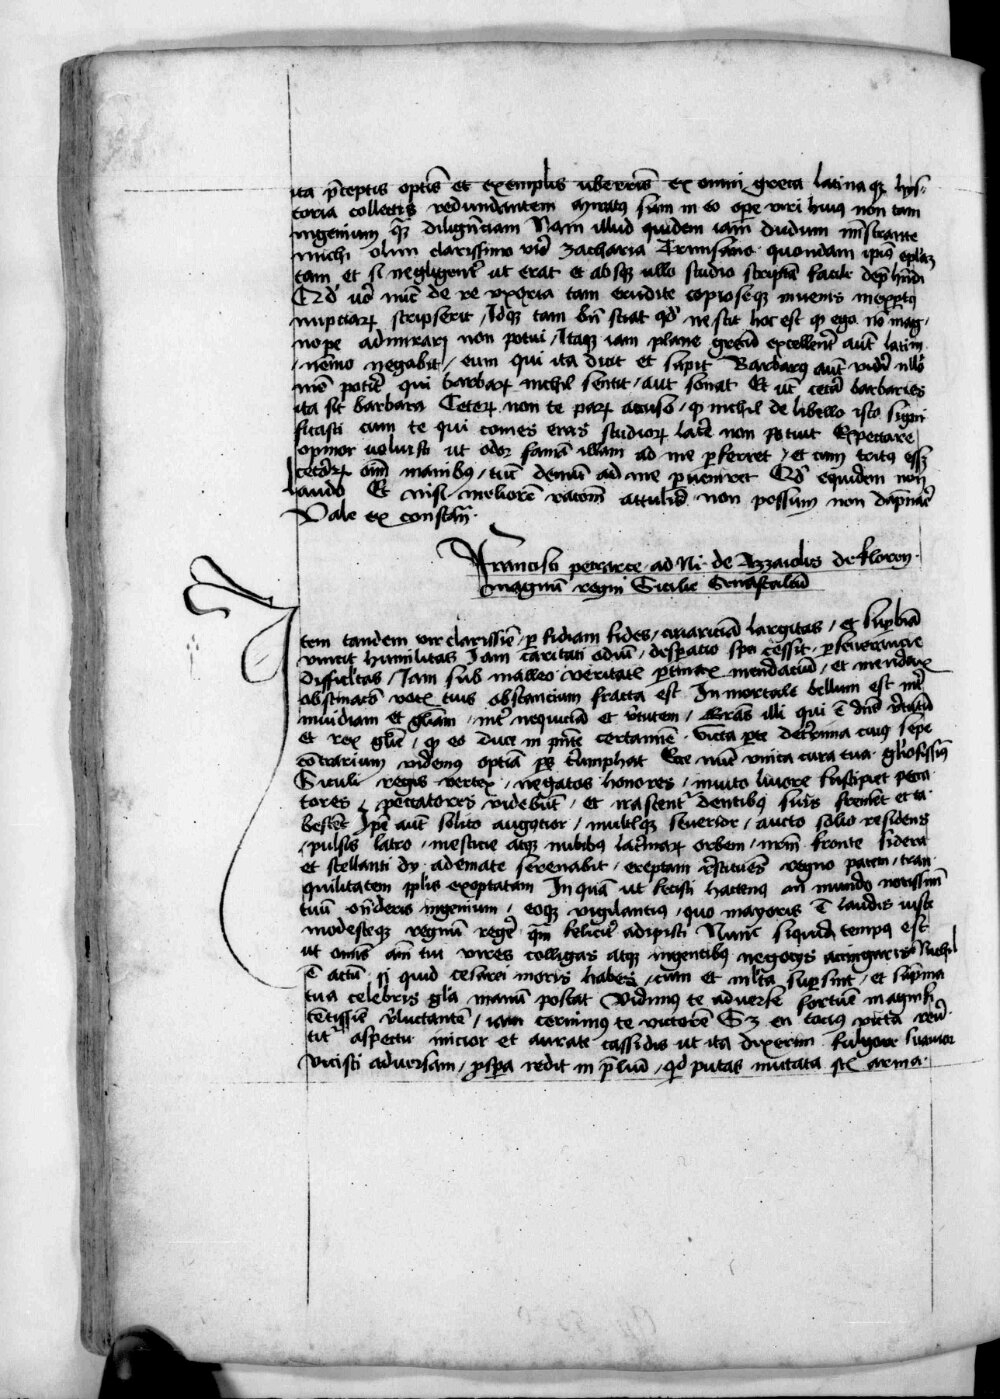 ita p̄ceptis optīs et exemplis uberrīs ex omni greca latinaqꝫ hys⸗
toria collectis redundantem miratꝰ sum in eo ope viri huiꝰ non tam
ingenium qꝫ diligenciam Nam illud quidem iam dudum mōstrante
michi olim clarissimo viro zacharia Trivisano quondam ipiꝰ eplaꝫ
tam et si negligentˀ ut erat et absqꝫ ullo studio scriptā facile dep̄hendi
Qd̓ uˀo nūc de re uxoria tam erudite copioseqꝫ inuenis inexptꝰ
nupciaꝝ scripserit / Idqꝫ tam bn̄ sciat qd̓ nescit hoc est qꝫ ego nō mag⸗
nope admirari non potui / Itaqꝫ iam plane grecū excellentˀ aut latinū
nemo negabit / eum qui ita dicit et sapit Barbarꝰ aut̄ vidˀi ullo
mō potˀit qui barbaꝝ nichil sentit / aut sonat Et ut cetˀa barbaries
ita sit barbara Ceteꝝ non te paꝝ accuso / qꝫ nichil de libello isto signi
ficasti cum te qui comes eras studioꝝ latˀe non potuit Expectare
opinor uoluisti ut odor famā illam ad me pferret / et cum tritꝰ esset
ceteroꝝ oīm manibꝰ / tūc demū ad me pueniret Qd̓ equidem non
laudo Et nisi meliorē racōnē attulˀis non possum non dāpnarˀ
Vale ex constan̄.
Francisci petrarce ad Ni. de Azzaiolis de floren.
magnū regni Sicilie Senascalcū
Item tandem vir clarissīe / pfidiam fides / auariciā largitas / et supbiā
vincit humilitas Iam caritati odiū / despatio spei cessit / pseuerancie
difficultas / Iam sub malleo veritatˀ ptinax mendaciū / et mendax
obstinacō votis tuis obstancium fracta est In mortale bellum est intˀ
inuidiam et gl̄iam / intˀ nequiciā et vˀtutem / Grās illi qui ē dn̄s vˀtutū
et rex gl̄ie / qꝫ eo duce in pn̄te certamīe victa pte detˀrima cuiꝰ sepe
cōtrarium videmus optīa ps tˀumphat Ecce nūc vnica cura tua gl̓osissimꝰ
Siculi regis vertex / negatos honores / inuito liuore suscipiet pecca⸗
tores / peccatores videbūt / et irascentˀ dentibꝰ suis fremēt et ta⸗
bescēt Ipe aut̄ solito augustior / multoqꝫ seuerior / aucto solio residens
pulsis latro / mesticie atqꝫ nubibꝰ lacˀimaꝝ orbem / nrm̄ fronte siderea
et stellanti dyademate serenabit / ereptam rˀstituēs regno pacem / tran⸗
quilitatem pplis exoptatam In quā ut fecisti hactenꝰ an mundo notissimū
tuū oñderis ingenium / eoqꝫ vigilantius / quo mayoris ē laudis iuste
modesteqꝫ regnū regˀe qm̄ felicitˀ adipisci Nunc siquid tempꝰ est
ut omīs aīm tui vires colligas atqꝫ ingentibꝰ negocys accingaris Nichil
ē actū si quid cesarei moris habes / cum et ml̓ta supsint / et sup̄ma
tua celebris gl̄a manū poscat Vidimꝰ te aduerse fortūe magnifi
cētissīe rˀluctantē / iam cernimꝰ te victorē Sꝫ en tocius victa reuˀ⸗
titˀ aspectu micior et aurate cassidis ut ita dixerim fulgore suauior
Vicisti aduersam / pspa redit in p̄liū / qd̓ putas mutata sūt arma.